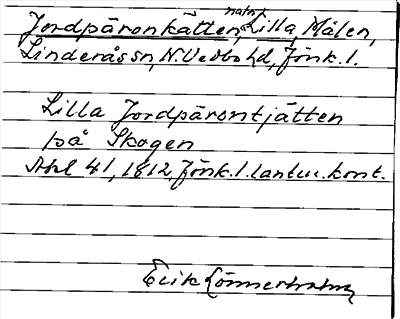 Jordpäronkätten, naturl. Lilla, Målen,
Linderås sn, N. Vedbo hd, Jönk. l.
Lilla Jordpärontjätten
på Skogen
Akt 41, 1812, Jönk. l. lantm. kont.
Erik Lönnerholm